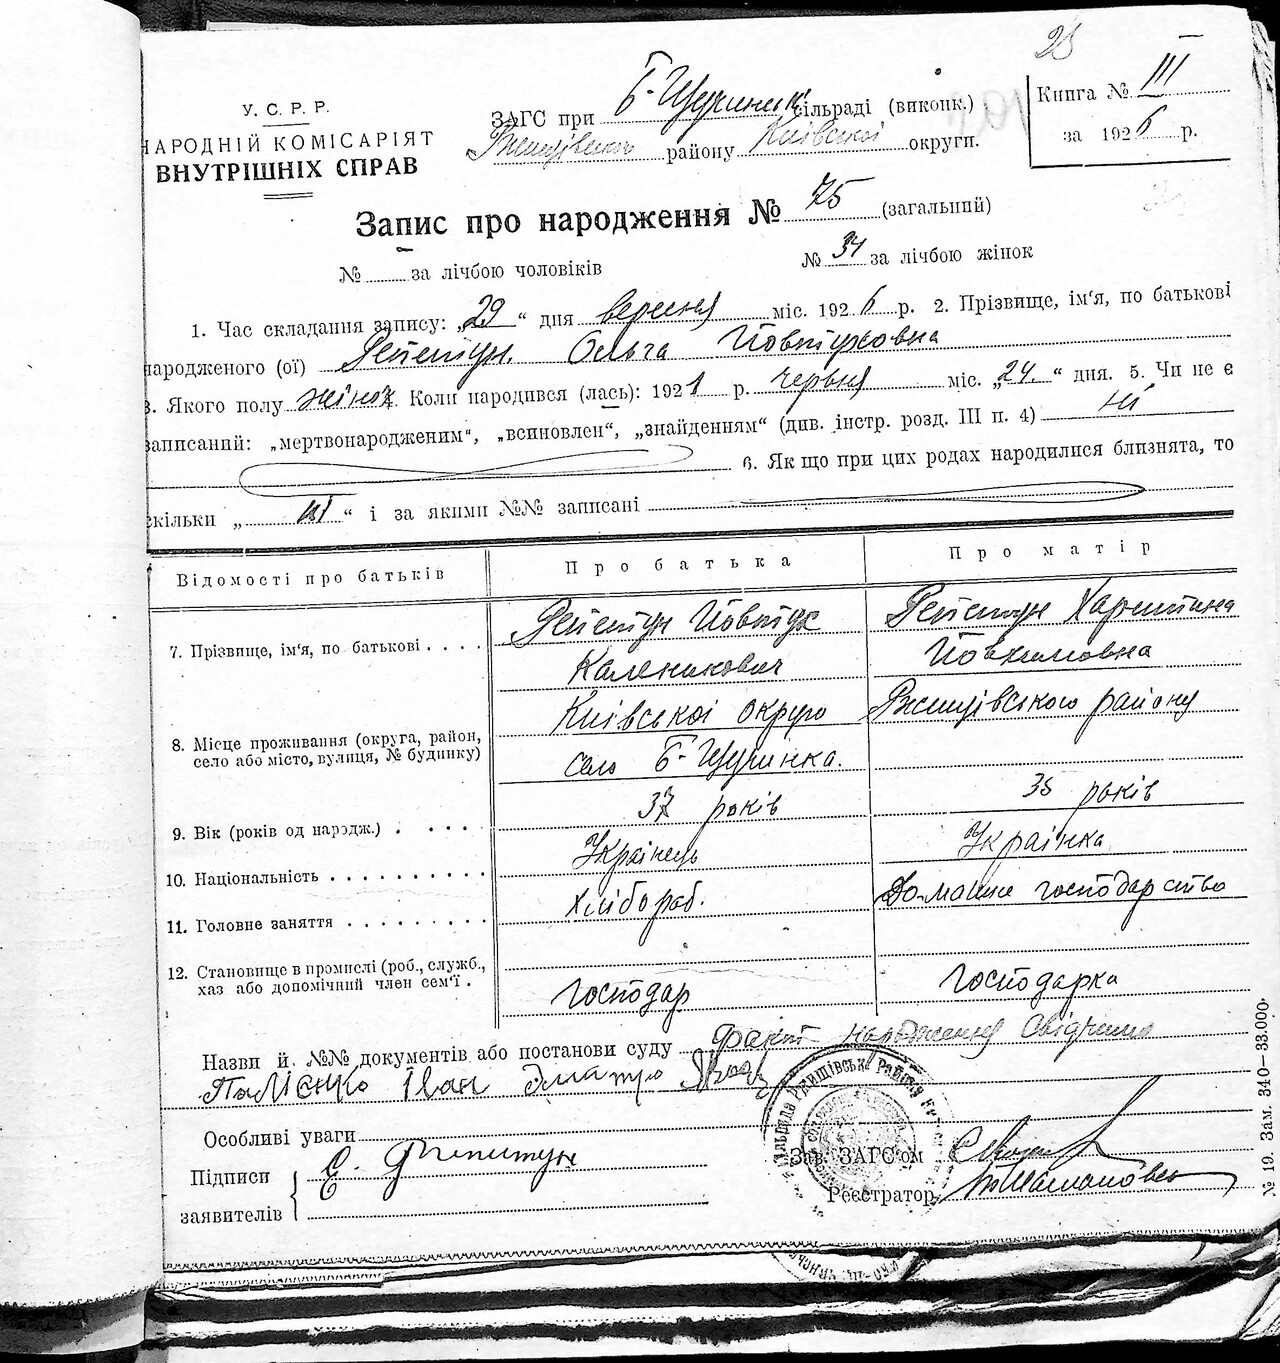 25
У. С. Р. Р.
НАРОДНІЙ КОМІСАРІЯТ
ВНУТРІШНІХ СПРАВ
ЗАГС при Б-Щучинськ. сільраді (виконк.)
Ржищівського району Київської округи.
Книга № III
за 1926 р.
Запис про народження № 75 (загальний)
№ за лічбою чоловіків № 34 за лічбою жінок
1. Час складання запису: „29“ дня вересня міс. 1926 р. 2. Прізвище, ім‘я, по батькові
народженого (ої) Репетун Ольга Йовтуховна
3. Якого полу жіноч. Коли народився (лась): 1921 р. червня міс. „24.“ дня. 5. Чи не є
записаний: „мертвонародженим“, „всиновлен“, „знайденням“ (див. інстр. розд. III п. 4) ні
6. Як що при цих родах народилися близнята, то
скільки „ ні “ і за якими №№ записані
Відомості про батьків Про батька Про матір
7. Прізвище, ім‘я, по батькові Репетун Йовтух Репетун Харитина
Каленикович Йовхимовна
8. Місце проживання (округа, район, село або місто, вулиця, № будинку) Київської округи Ржищівського району
село Б-Щучинка.
9. Вік (років од народж.) 37 років 35 років
10. Національність Українець Українка
11. Головне заняття Хлібороб. Домашнє господарство
12. Становище в промислі (роб., служб., хаз або допомічний член сем‘ї. Господар Господарка
Назви й. №№ документів або постанови суду факт народження свідчить
Іван Дмитро
Особливі уваги
Підписи
заявителів
Є. Репетун
Зав. ЗАГС‘ом
Реєстратор
№ 19. Зам. 340—33.000.